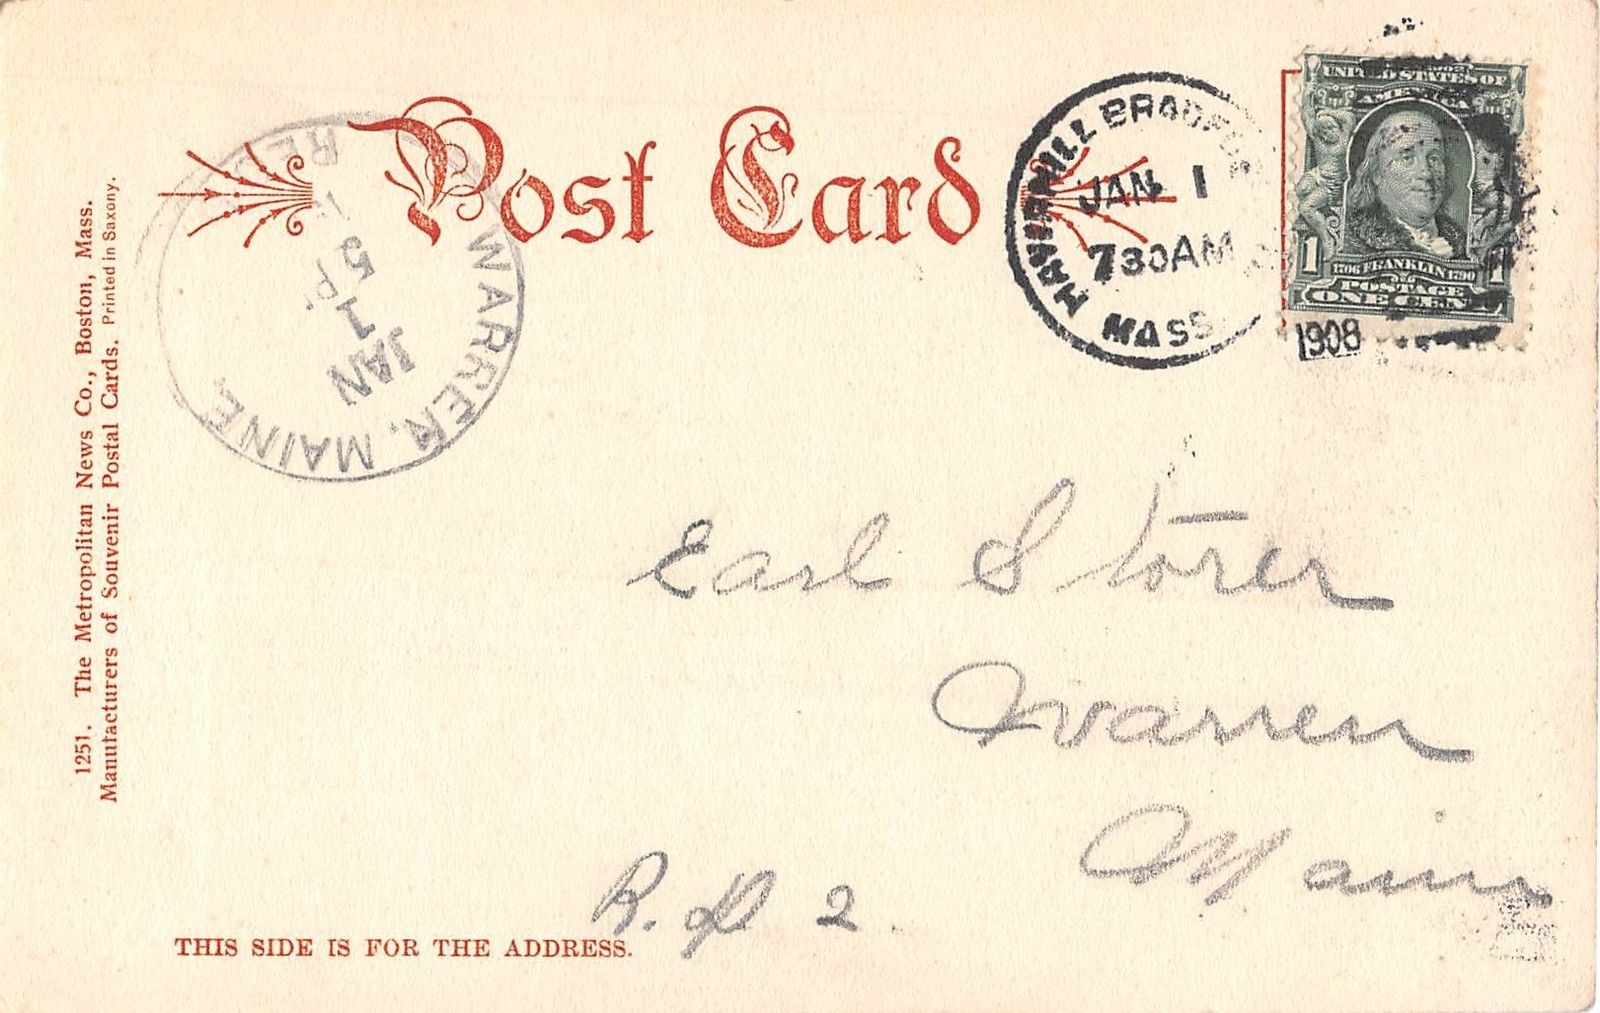 Post Card
HAVERHILL BRADFORD
JAN 1
730AM
MASS.
1908
UNITED STATES OF
AMERICA
1706 FRANKLIN 1790
POSTAGE
1 1
ONE CENT
WARREN, MAINE
JAN
1
5 P
REC
1251. The Metropolitan News Co., Boston, Mass.
Manufacturers of Souvenir Postal Cards. Printed in Saxony.
Earl Storer
Warren
Maine
R. D 2
THIS SIDE IS FOR THE ADDRESS.